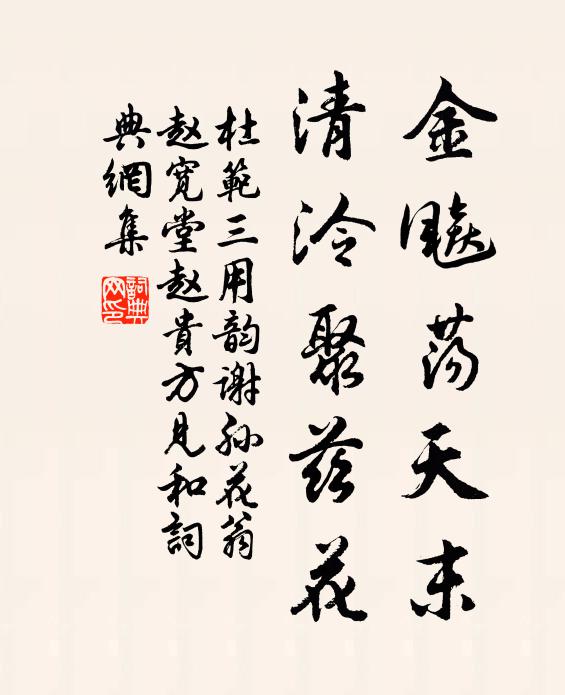 金飈荡天末
清泠聚兹花
杜範三用韵谢孙花翁
赵宽堂赵貴方見和詞
典網集
詞典网印